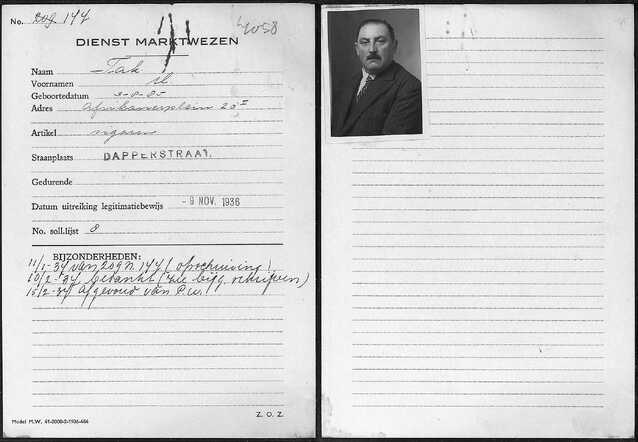 No. zog. 144
4058
DIENST MARKTWEZEN
Naam Tak
Voornamen M
Geboortedatum
Adres Afrikanerplein 20 I
Artikel
Staanplaats DAPPERSTRAAT.
Gedurende
Datum uitreiking legitimatiebewijs - 9 NOV. 1936
No. soll.lijst 8
BIJZONDERHEDEN:
11/1-37 van zog n. 144 (opschuiving)
10/2-37 bedankt (zie bijg. schrijven)
15/2-37 Afgevoerd van
Model M.W. 41-2000-2-1936-466
Z. O. Z.